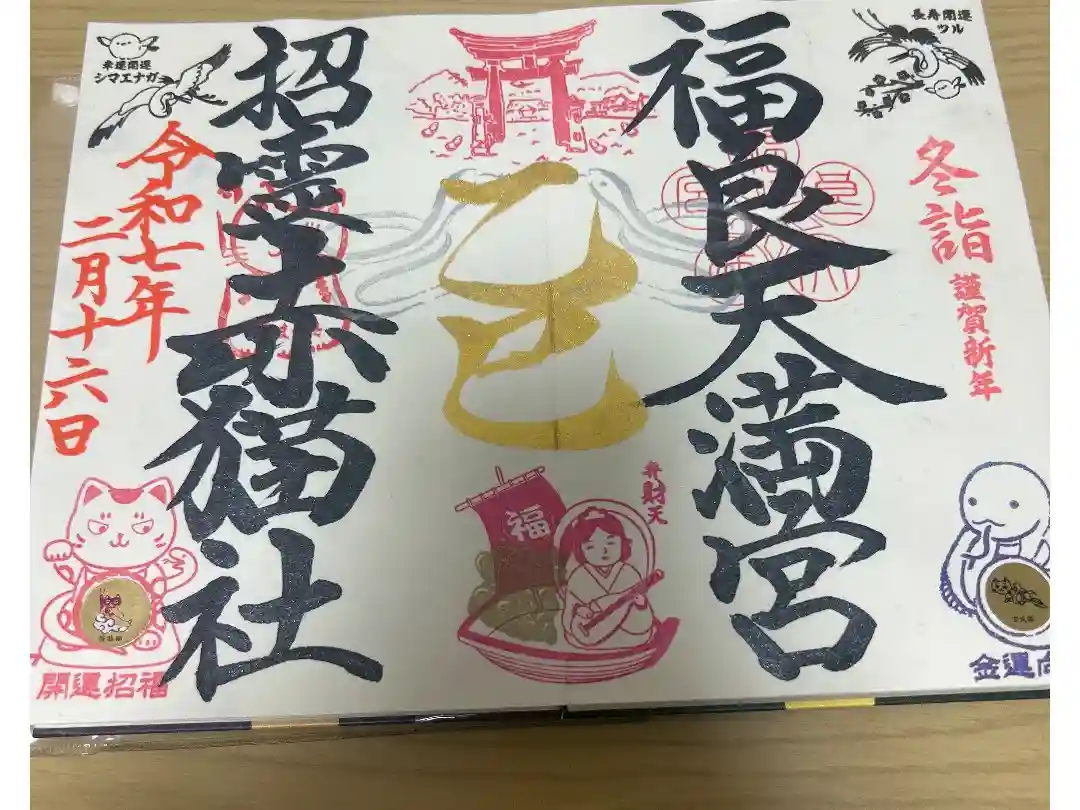 長寿開運
ツル
冬詣
謹賀新年
福良天満宮
金運向
乙巳
福
弁財天
招霊赤猫社
幸運開運
シマエナガ
令和七年
二月十六日
開運招福